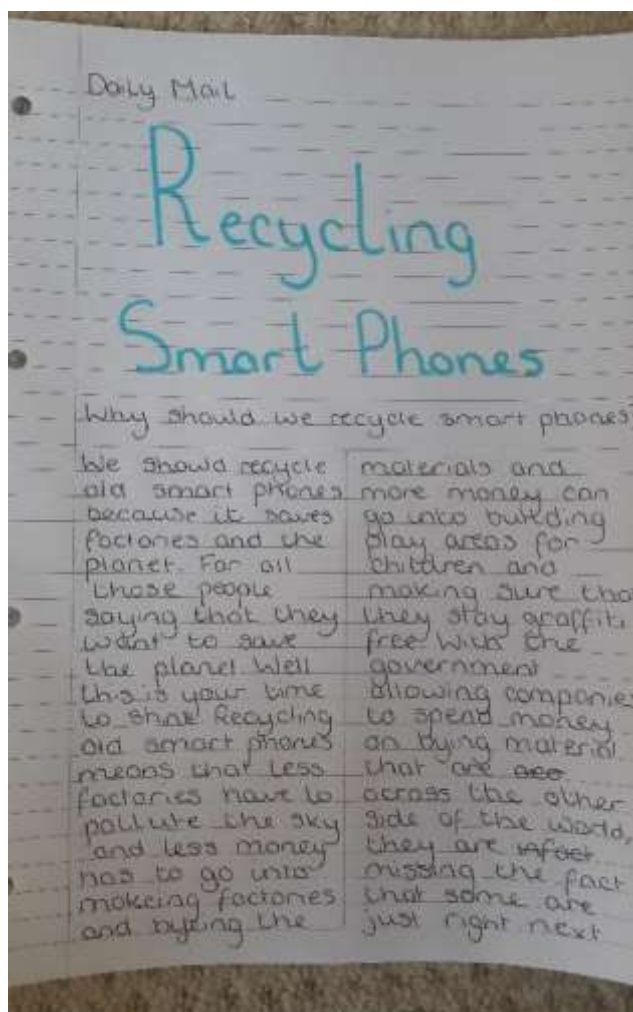 Daily Mail
Recycling
Smart Phones
Why should we recycle smart phones?
We should recycle
old smart phones
because it saves
factories and the
planet. For all
those people
saying that they
want to save
the planet well
this is your time
to shine Recycling
old smart phones
means that less
factories have to
pollute the sky
and less money
has to go into
makeing factories
and bying the
materials and
more money can
go into building
play areas for
children and
making sure that
they stay graffiti
free with the
government
allowing companies
to spend money
on bying material
that are
across the other
side of the world,
they are infact
missing the fact
that some are
just right next